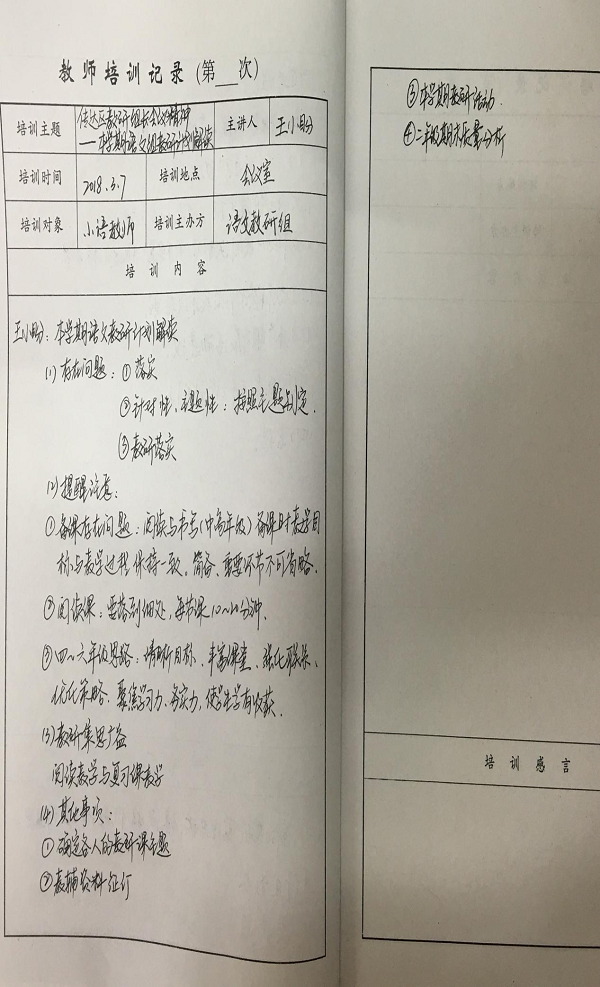 教师培训记录(第__次)
培训主题
传达区教研组长会议精神
——本学期语文组教研计划解读
主讲人
王小明
培训时间
2018.3.7
培训地点
会议室
培训对象
小语教师
培训主办方
语文教研组
培训内容
王小明:本学期语文教研计划解读
(1)存在问题:①落实
②针对性、主题性:按照主题制定.
③教研落实
(2)提醒注意:
①备课存在问题:阅读与书写(中高年级)备课时教学目
标与教学过程保持一致。简备、重要环节不可省略.
②阅读课:要落到细处,每节课10~20分钟.
③四~六年级思路:清晰目标、丰富课堂、强化联系、
优化策略、聚焦学习力、务实力,使学生学有收获.
(3)教研集思广益
阅读教学与复习课教学
(4)其他事项:
①确定各人的教研课主题
②教辅资料征订
③本学期教研活动.
④二年级期末质量分析
培训感言